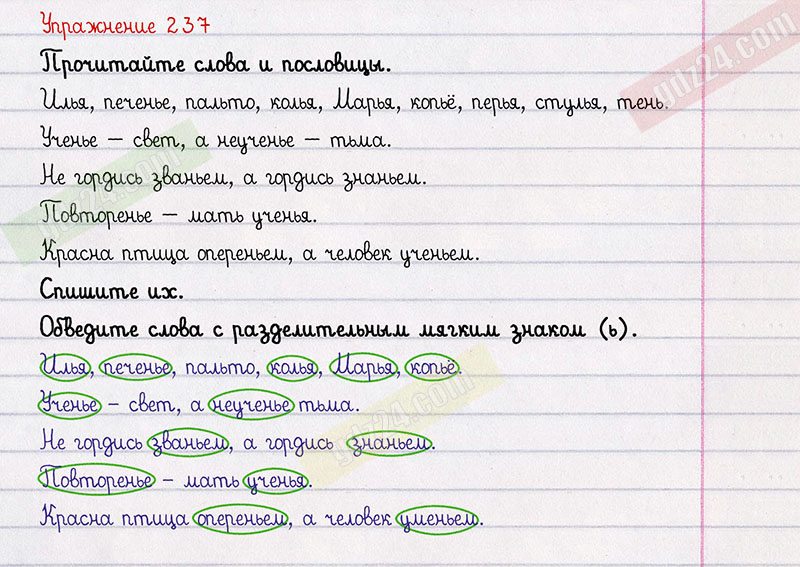 Упражнение 237
Прочитайте слова и пословицы.
Илья, печенье, пальто, колья, Марья, копьё, перья, стулья, тень.
Ученье – свет, а неученье – тьма.
Не гордись званьем, а гордись знаньем.
Повторенье – мать ученья.
Красна птица опереньем, а человек ученьем.
Спишите их.
Обведите слова с разделительным мягким знаком (ь).
Илья, печенье, пальто, колья, Марья, копьё.
Ученье – свет, а неученье тьма.
Не гордись званьем, а гордись знаньем.
Повторенье – мать ученья.
Красна птица опереньем, а человек уменьем.
gdz24.com
gdz24.com
gdz24.com